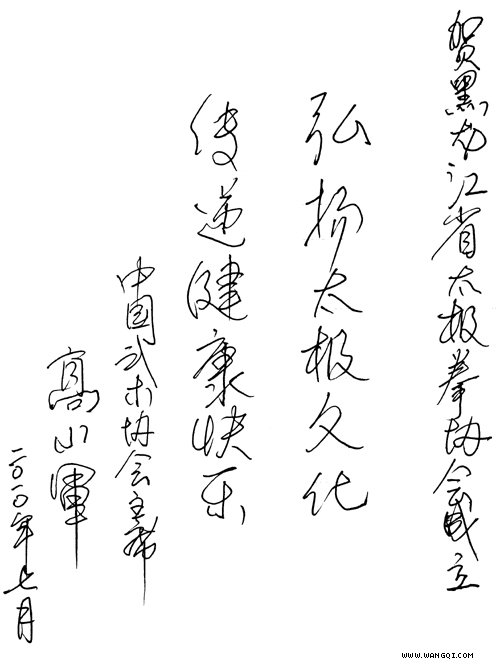 贺黑龙江省太极拳协会成立
弘扬太极文化
传递健康快乐
中国武术协会主席
高小军
二〇一〇年七月
WWW.WANGQI.COM